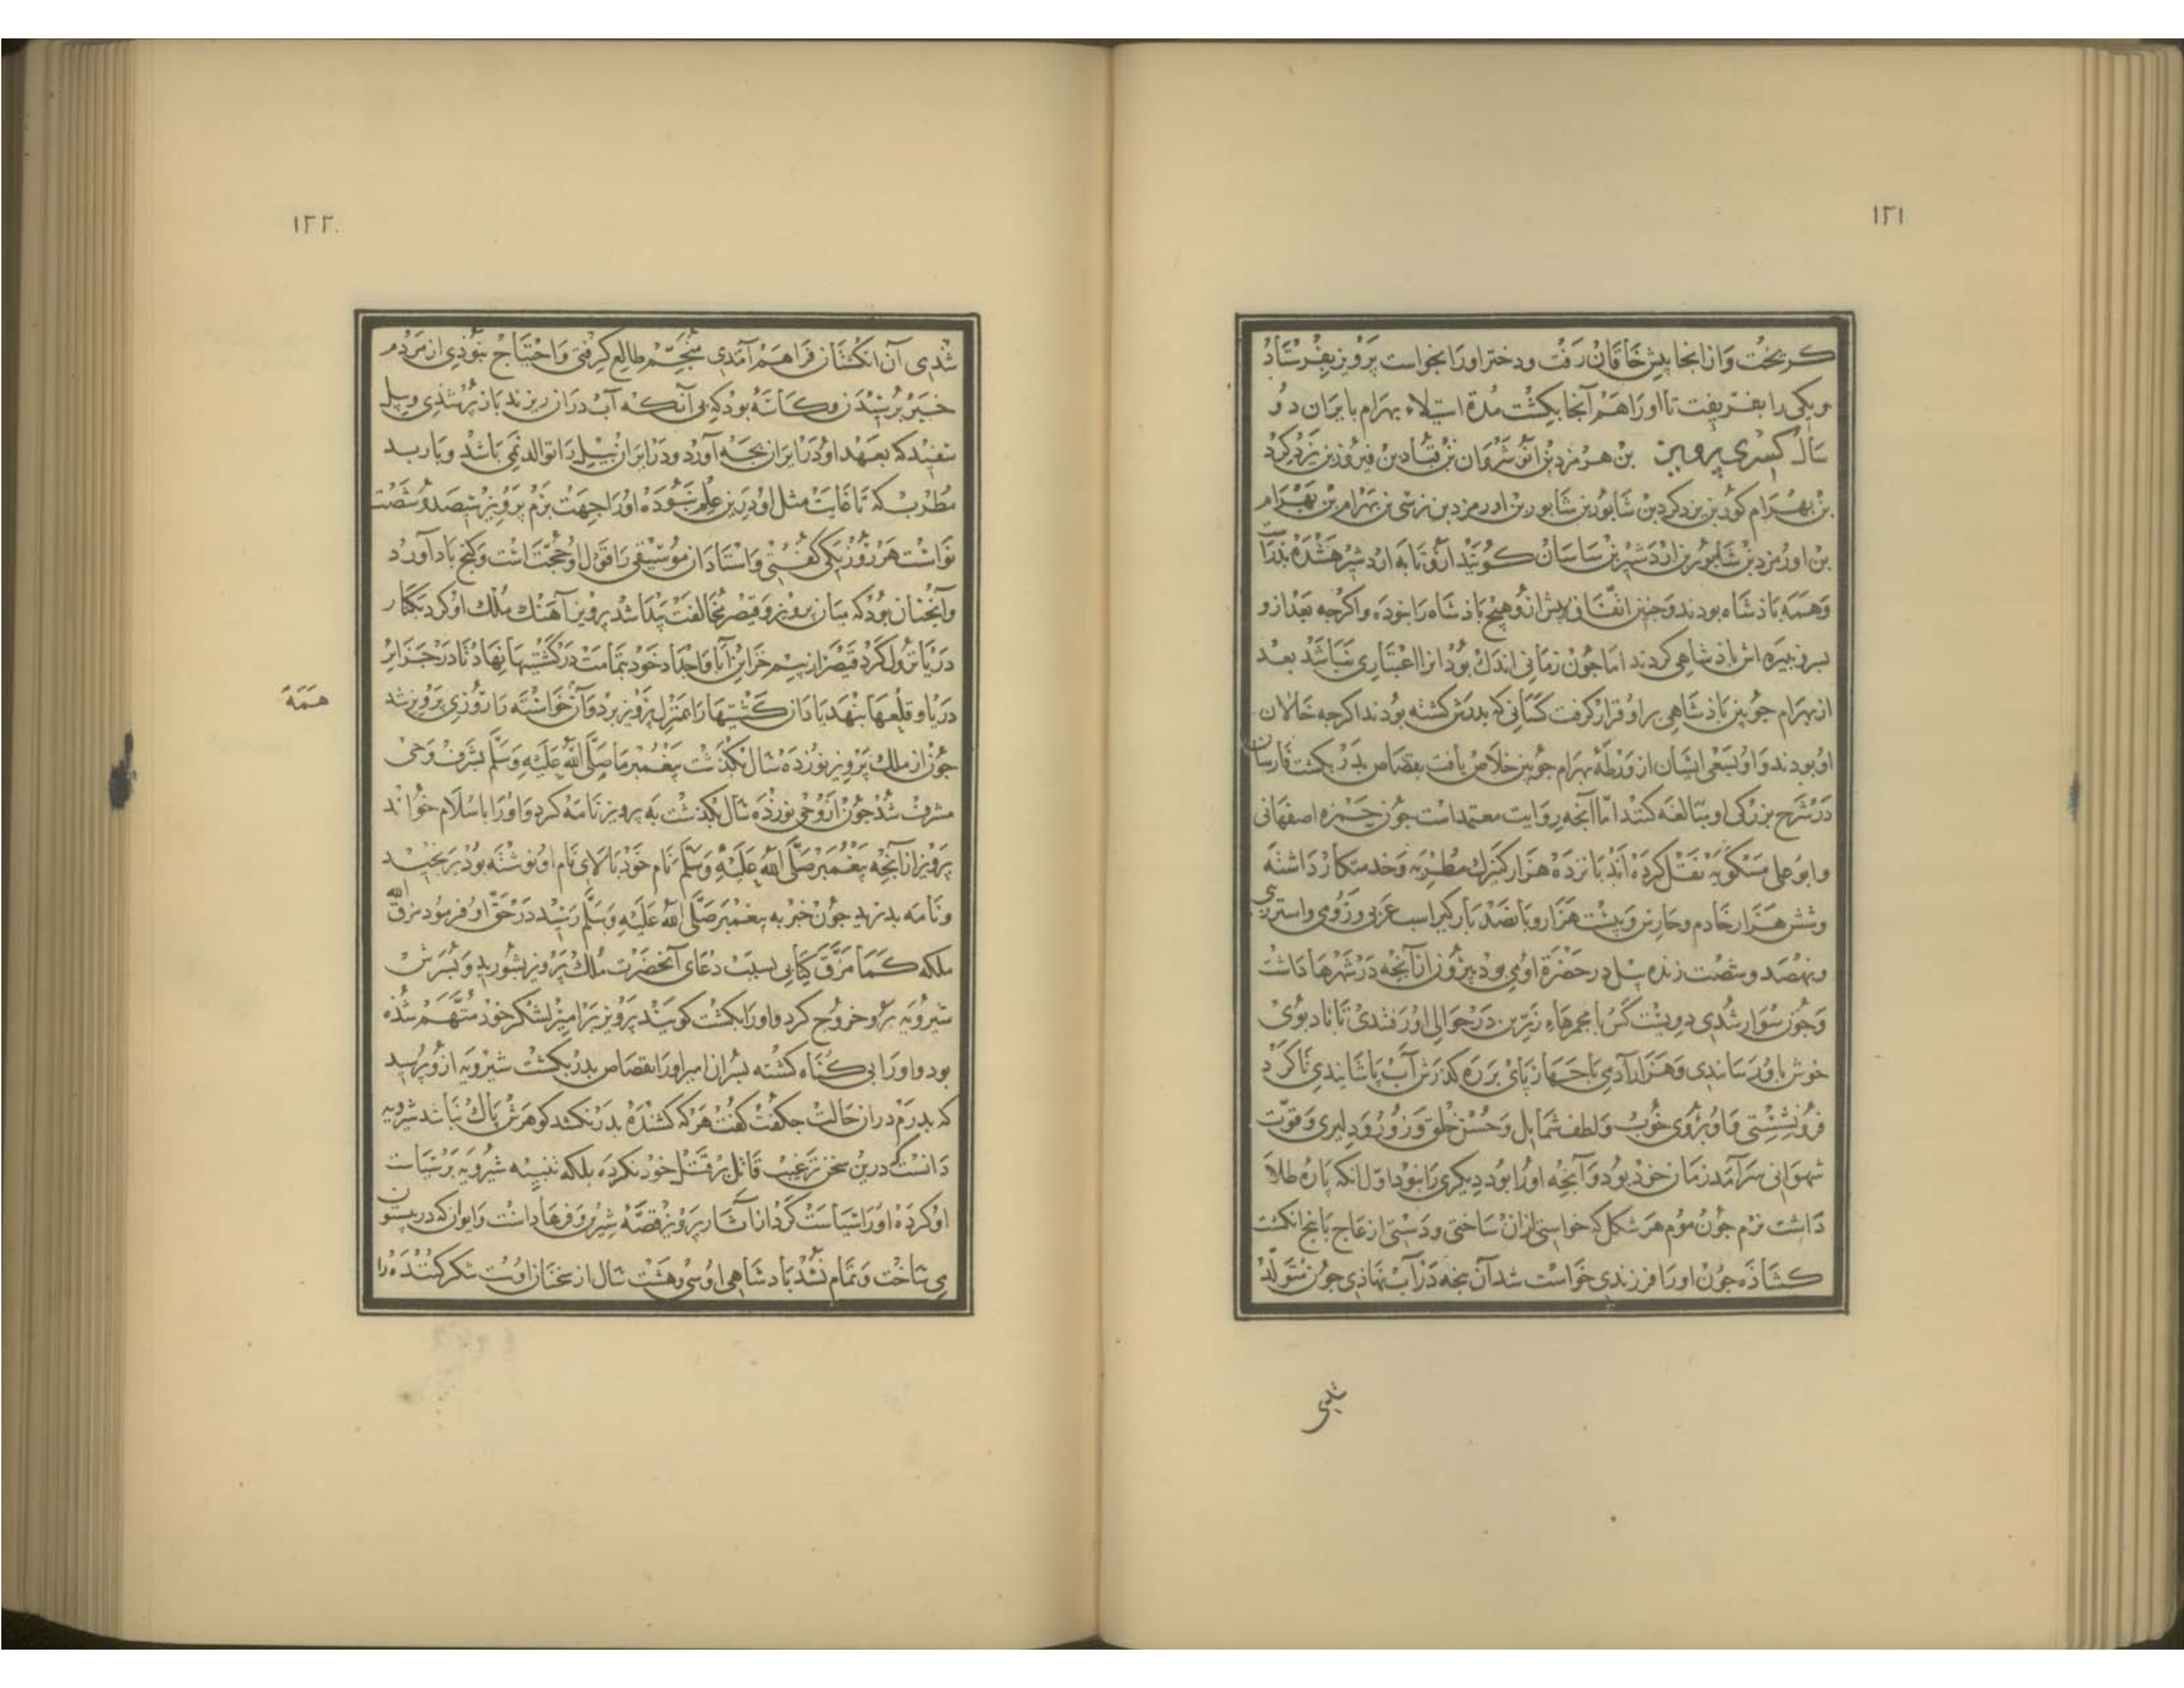 ۱۲۱
کریخت وازانجا پیش خاقان رفت ودختر اورا بخواست پرویز بفرستاد
ویکی را بفریفت تا اورا هم آنجا بکشت مدة استیلاء بهرام بایران دو
سال کسری پرویز بن هرمزدبن انوشروان بن قباد بن فیروزبن یزدکرد
بن بهرام کوربن یزدکردبن شابوربن شابوربن اورمزدبن نرسی بن بهرام بن بهرام
بن اورمزدبن شابوربن اردشیربن ساسان کویند ازو تا به اردشیر هشده بدرا
وهمه باذشاه بودند وچنین اتفاق بیش ازو هیچ باذشاه را نبوده واکرجه بعدازو
بسر ونبیره اش باذشاهی کردند اما جون زمانی اندك بود انرا اعتباری نباشد بعد
ازبهرام جوبین باذشاهی براو قرار کرفت کسانی که بدرش کشته بودند اکرجه خالان
اوبودند واوبسعی ایشان از ورطه بهرام جوبین خلاص یافت بقصاص بدر بکشت فارسان
درشرح بزرکی او مبالغه کنند اما آنجه روایت معتمداست جون حمزه اصفهانی
وابوعلی مسکویه نقل کرده اند بانزده هزار کنیزك مطربه وخدمتکار داشته
وشش هزار خادم وحارس وبیست هزار وبانصد بارکیر اسب عربی ورومی واستر
ونهصد وشصت زنده پیل در حضرة اومی بود بیرون ازآنجه درشهرها داشت
وجون سوار شدی دویست کس با مجمرهاء زرین درحوالی اورفتندی تا باد بوی
خوش باو رساندی وهزار آدمی با جهارپای بر ره کذرش آب پاشاندی تا کرد
فرونشستی واو بروی خوب ولطف شمایل وحسن خلق وزور ودلیری وقوت
شهوانی سرآمد زمان خود بود وآنجه اورا بود دیکری را نبود اول انکه پاره طلا
داشت نرم جون موم هرشکل که خواستی ازان ساختی ودستی ازعاج باپنج انکشت
کشاذه جون اورا فرزندی خواست شد آن پنجه درآب نهاذی جون متولد
شدی
۱۲۲
شدی آن انکشتان فراهم آمدی منجم طالع کرفتی واحتیاج نبوذی از مردم
خبر پرسیدن وکاسه بود که بی آنکه آب دران ریزند باز پرشدی وپیل
سفید که بعهد اودرایران بجه آورد ودرایران پیل را توالد نمی باشد وبارید
مطرب که تا غایت مثل اودرین علم نبوده اورا جهت بزم پرویز سیصد وشصت
نواست هرروز یکی کفتی واستادان موسیقی را قول اوحجت است وکنج بادآورد
وآنجنان بودکه میان پرویز وقیصر مخالفت پیدا شد پرویز آهنك ملك اوکرد بکنار
دریا نزول کرد قیصر از بیم خزاین آبا واجداد خود بتمامت درکشتیها نهاد تا درجزایر
دریا وقلعها بنهد باد ان کشتیها را بمنزل پرویز برد وآن خواسته را روزی پرویز شد
همه
جون از ملك پرویز نوزده سال بکذشت پیغمبر ما صلی الله علیه وسلم بشرف وحی
مشرف شد جون از وحی نوزده سال بکذشت به پرویز نامه کرد واورا باسلام خواند
پرویز از آنجه پیغمبر صلی الله علیه وسلم نام خود بالای نام او نوشته بود برنجید
ونامه بدرید جون خبر به پیغمبر صلی الله علیه وسلم رسید درحق او فرمود مزق الله
ملکه کما مزق کتابی بسبب دعای آنحضرت ملك پرویز بشورید وبسرش
شیرویه برو خروج کرد واورا بکشت کویند پرویز برامیر لشکر خود متهم شده
بود واورا بی کناه کشته بسران امیر اورا بقصاص بدر بکشت شیرویه ازو پرسید
که بدرم دران حالت جکفت کفت هرکه کشنده بدر نکشد کوهرش پاك نباشد شیرویه
دانست که درین سخن ترغیب قاتل بر قتل خود نکرده بلکه تنبیه شیرویه برسیاست
اوکرده اورا سیاست کرد ازآثار پرویز قصه شیرین وفرهاداست وایوان که دربیستون
می ساخت وتمام نشد بادشاهی اوسی وهشت سال از سخنان اوست شکر کننده را